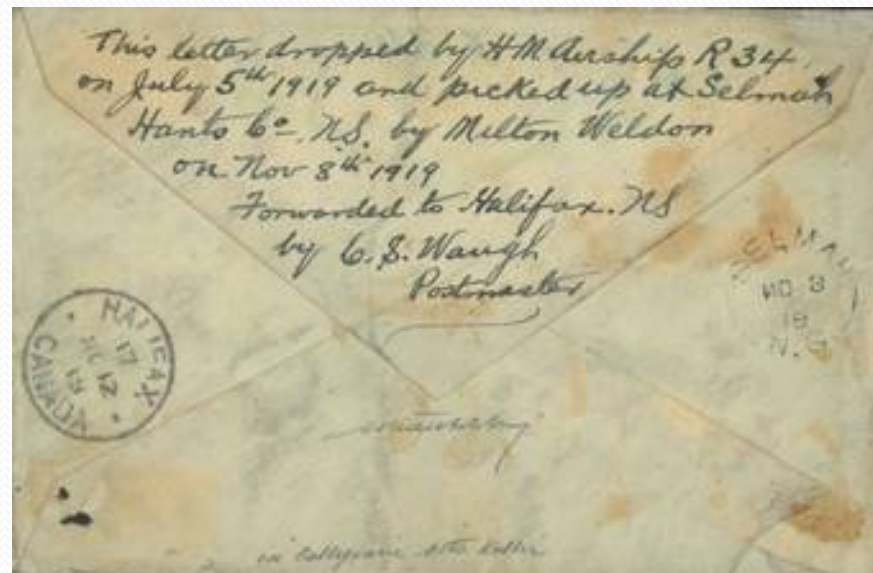 This letter dropped by HM Airship R 34.
on July 5th 1919 and picked up at Selmah
Hants Co. NS. by Milton Weldon
on Nov 8th 1919
Forwarded to Halifax. NS
by C. S. Waugh
Postmaster
HALIFAX
17
NO 12
19
CANADA
SELMAH
NO 8
19
N.S.